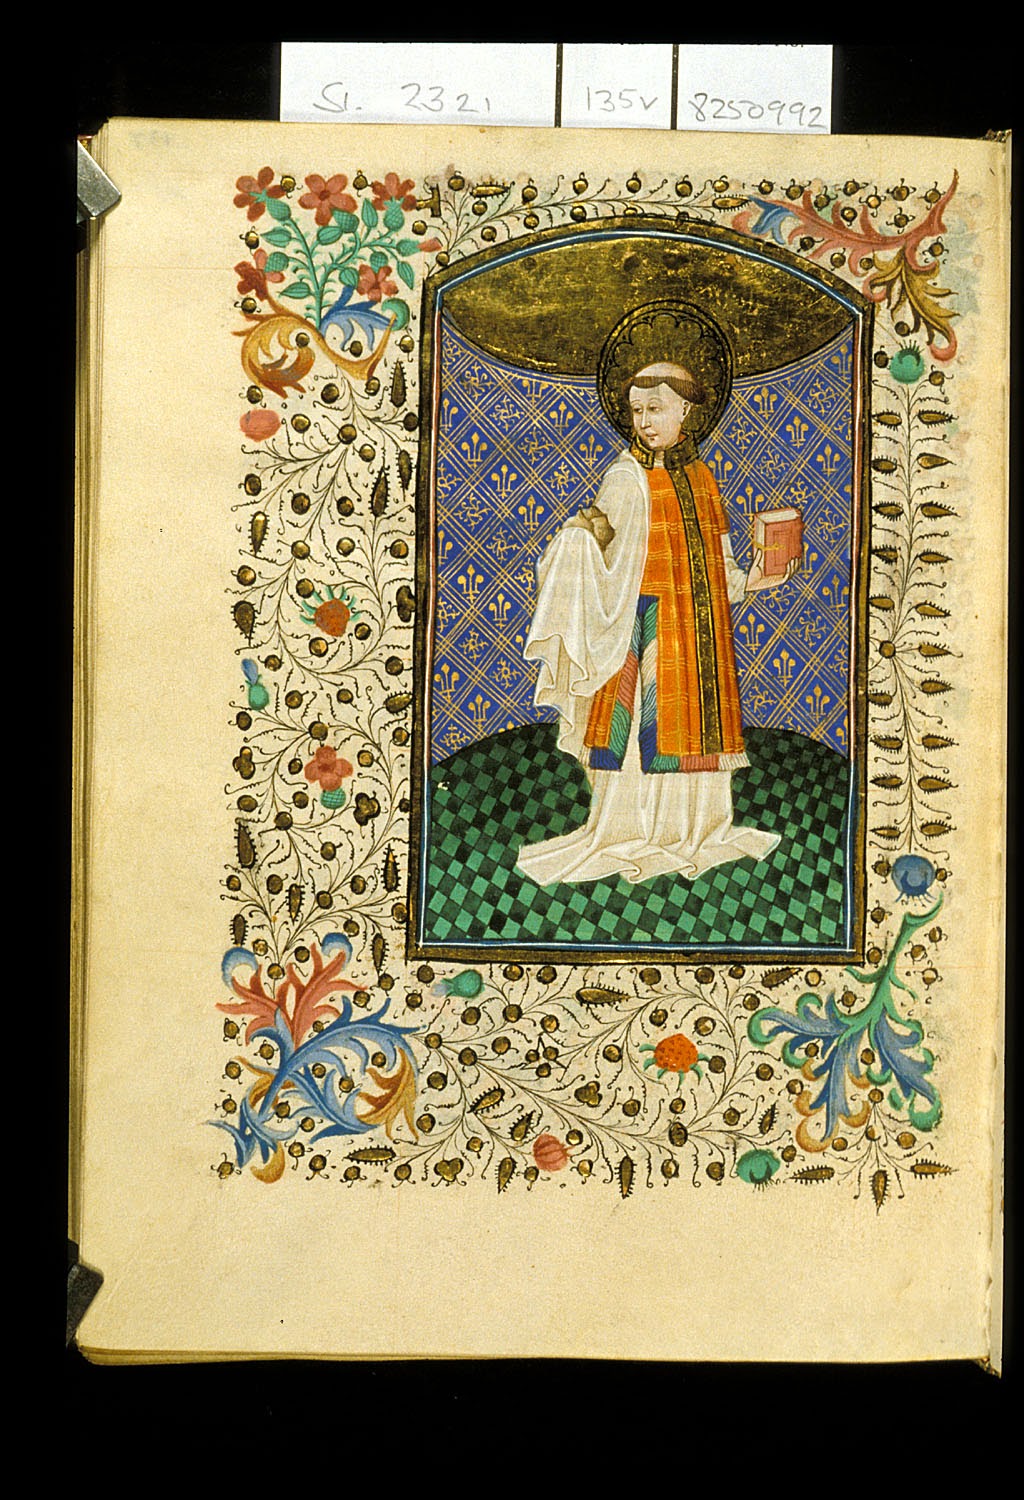 Sl. 2321 135v 8250992